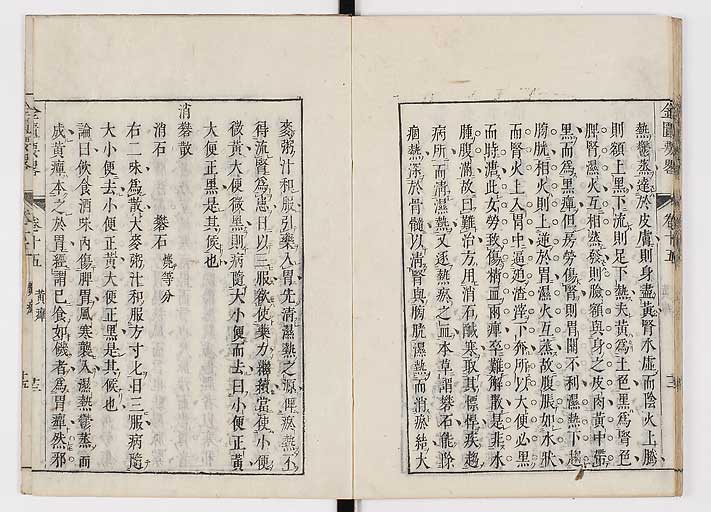 熱鬱蒸達於皮膚則身盡黃腎水虛而陰火上騰
則額上黑下流則足下熱夫黃為土色黑為腎色
脾腎濕火互相蒸發則臉額與身之皮肉黃中帶
黑而為黑疸但房勞傷腎則胃關不利濕熱下趨
膀胱相火則上逆於胃濕火互蒸故腹脹如水狀
而腎火上入胃中逼迫渣滓下奔所以大便必黑
而時溏此女勞致傷精血兩瘁至難解散是非水
腫腹滿故曰難治方用消石鹹寒取其慓悍疾趨
病所而清濕熱又逐熱瘀之血本草謂礬石能除
痼熱深於骨髓以清腎與膀胱濕熱而消瘀結大
麥粥汁和服引藥入胃先清濕熱之源俾瘀熱不
得流腎為患日以三服欲使藥力繼續當使小便
微黃大便微黑則病隨大小便而去曰小便正黃
大便正黑是其候也
消礬散
消石 礬石 燒等分
右二味為散大麥粥汁和服方寸匕日三服病隨
大小便去小便正黃大便正黑是其候也
論曰飲食酒味內傷脾胃風寒襲入濕熱鬱蒸而
成黃疸本之於胃經謂已食如饑者為胃疸然邪
卷十五 黃疸